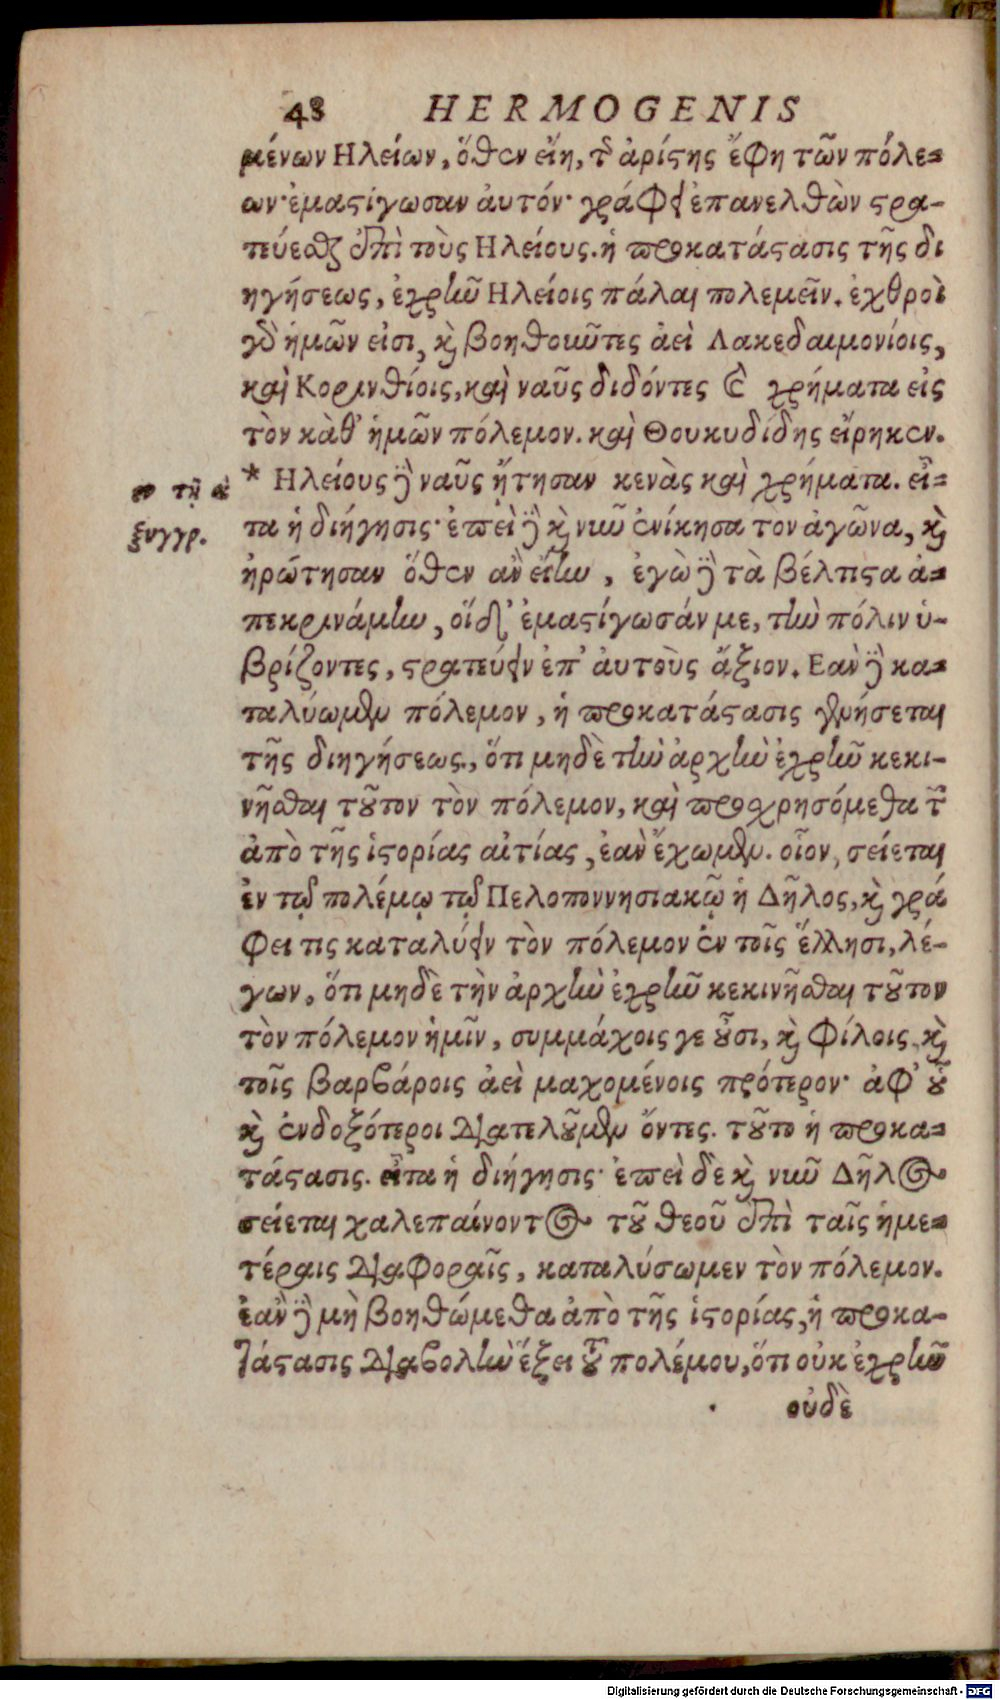 48 HERMOGENIS
μένων Ηλείων, ὅθεν εἴη, τῆς ἀρίστης ἔφη τῶν πόλε-
ων· ἐμαστίγωσαν ἀυτόν· γράφει ἐπανελθὼν στρα-
τεύεσθαι ἐπὶ τοὺς Ηλείους. ἡ προκατάστασις τῆς δι
ηγήσεως, ἐχρῆν Ηλείοις πάλαι πολεμεῖν. ἐχθροὶ
γὰρ ἡμῶν εἰσι, καὶ βοηθοιῶτες ἀεὶ Λακεδαιμονίοις,
καὶ Κορινθίοις, καὶ ναῦς διδόντες καὶ χρήματα εἰς
τὸν κὰθ' ἡμῶν πόλεμον. καὶ Θουκυδίδης εἴρηκεν.
* Ηλείους δὲ ναῦς ᾔτησαν κενὰς καὶ χρήματα. εἶ-
ἐν τῇ α
ξυγγρ.
τα ἡ διήγησις· ἐπεὶ δὲ καὶ νῦν ἐνίκησα τὸν ἀγῶνα, καὶ
ἠρώτησαν ὅθεν ἂν εἴην, ἐγὼ δὲ τὰ βέλτιστα ἀ-
πεκρινάμην, οἵδ' ἐμαστίγωσάν με, τὴν πόλιν ὑ-
βρίζοντες, στρατεύειν ἐπ' ἀυτοὺς ἄξιον. Εαν δὲ κα-
ταλύωμεν πόλεμον, ἡ προκατάστασις γενήσεται
τῆς διηγήσεως, ὅτι μηδὲ τὴν ἀρχὴν ἐχρῆν κεκι-
νῆσθαι τοῦτον τὸν πόλεμον, καὶ προσχρησόμεθα τῆς
ἀπὸ τῆς ἱστορίας αἰτίας, ἐὰν ἔχωμεν. οἷον, σείεται
ἐν τῷ πολέμῳ τῷ Πελοποννησιακῷ ἡ Δῆλος, καὶ γρά
φει τις καταλύειν τὸν πόλεμον ἐν τοῖς ἕλλησι, λέ-
γων, ὅτι μηδὲ τὴν ἀρχὴν ἐχρῆν κεκινῆσθαι τοῦτον
τὸν πόλεμον ἡμῖν, συμμάχοις γε οὖσι, καὶ φίλοις καὶ
τοῖς βαρβάροις ἀεὶ μαχομένοις πρότερον· ἀφ' οὗ
καὶ ἐνδοξότεροι διατελοῦμεν ὄντες. τοῦτο ἡ προκα-
τάστασις. εἶτα ἡ διήγησις· ἐπεὶ δὲ καὶ νῦν Δῆλος
σείεται χαλεπαίνοντος τοῦ θεοῦ ἐπὶ ταῖς ἡμε-
τέραις διαφοραῖς, καταλύσωμεν τὸν πόλεμον.
ἐὰν δὲ μὴ βοηθώμεθα ἀπὸ τῆς ἱστορίας, ἡ προκα-
τάστασις διαβολὴν ἕξει τοῦ πολέμου, ὅτι οὐκ ἐχρῆν
οὐδὲ
Digitalisierung gefördert durch die Deutsche Forschungsgemeinschaft - DFG